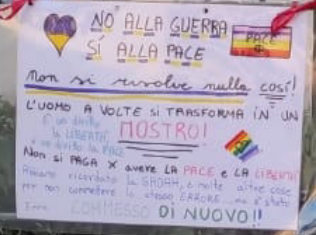 NO ALLA GUERRA
SÍ ALLA PACE
PACE
Non si risolve nulla così!
L'UOMO A VOLTE SI TRASFORMA IN UN
È un diritto
la LIBERTÀ
MOSTRO!
un diritto la PACE
Non SI PAGA X avere LA PACE e LA LIBERTÀ
ricordato la SHOAH, e molte altre cose
per non commettere lo stesso ERRORE... ma è stato
COMMESSO DI NUOVO!!